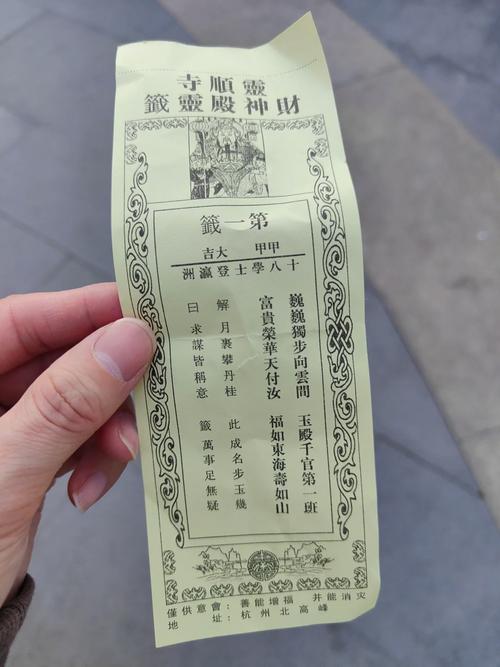 靈順寺
財神殿靈籤
第一籤
甲甲 大吉
十八學士登瀛洲
巍巍獨步向雲間 玉殿千官第一班
富貴榮華天付汝 福如東海壽如山
解 月裏攀丹桂 此 成名步玉幾
曰 求謀皆稱意 籤 萬事足無疑
僅供意會：善能增福 并能消灾
地 址：杭州北高峰